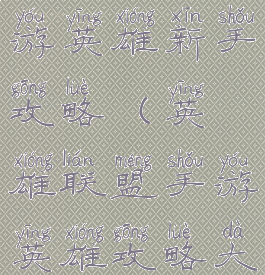 yóu yīng xióng xīn shǒu
游英雄新手
gōng lüè yīng
攻略（英
xióng lián méng shǒu yóu
雄联盟手游
yīng xióng gōng lüè dà
英雄攻略大